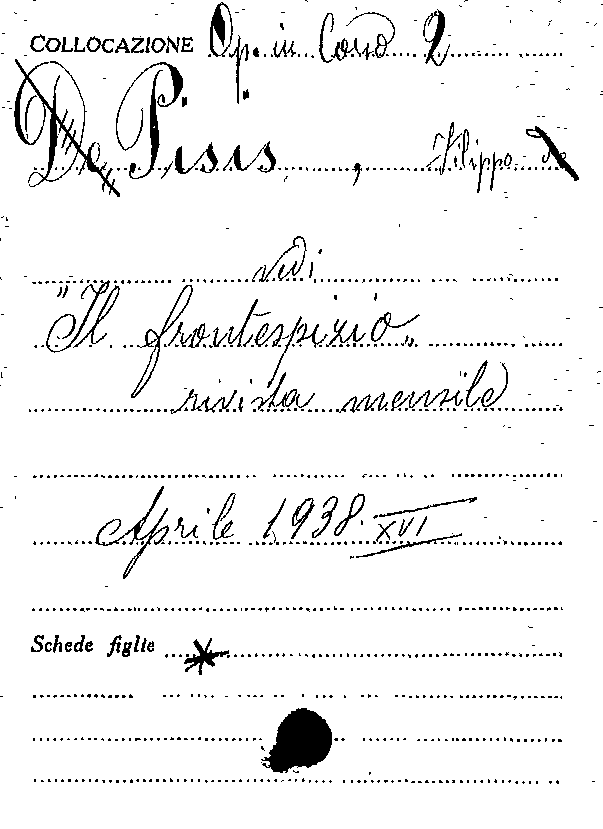 COLLOCAZIONE Op. in Corso 2
De Pisis, Filippo de
vedi
"Il frontespizio"
rivista mensile
Aprile 1938 XVI
Schede figlie *